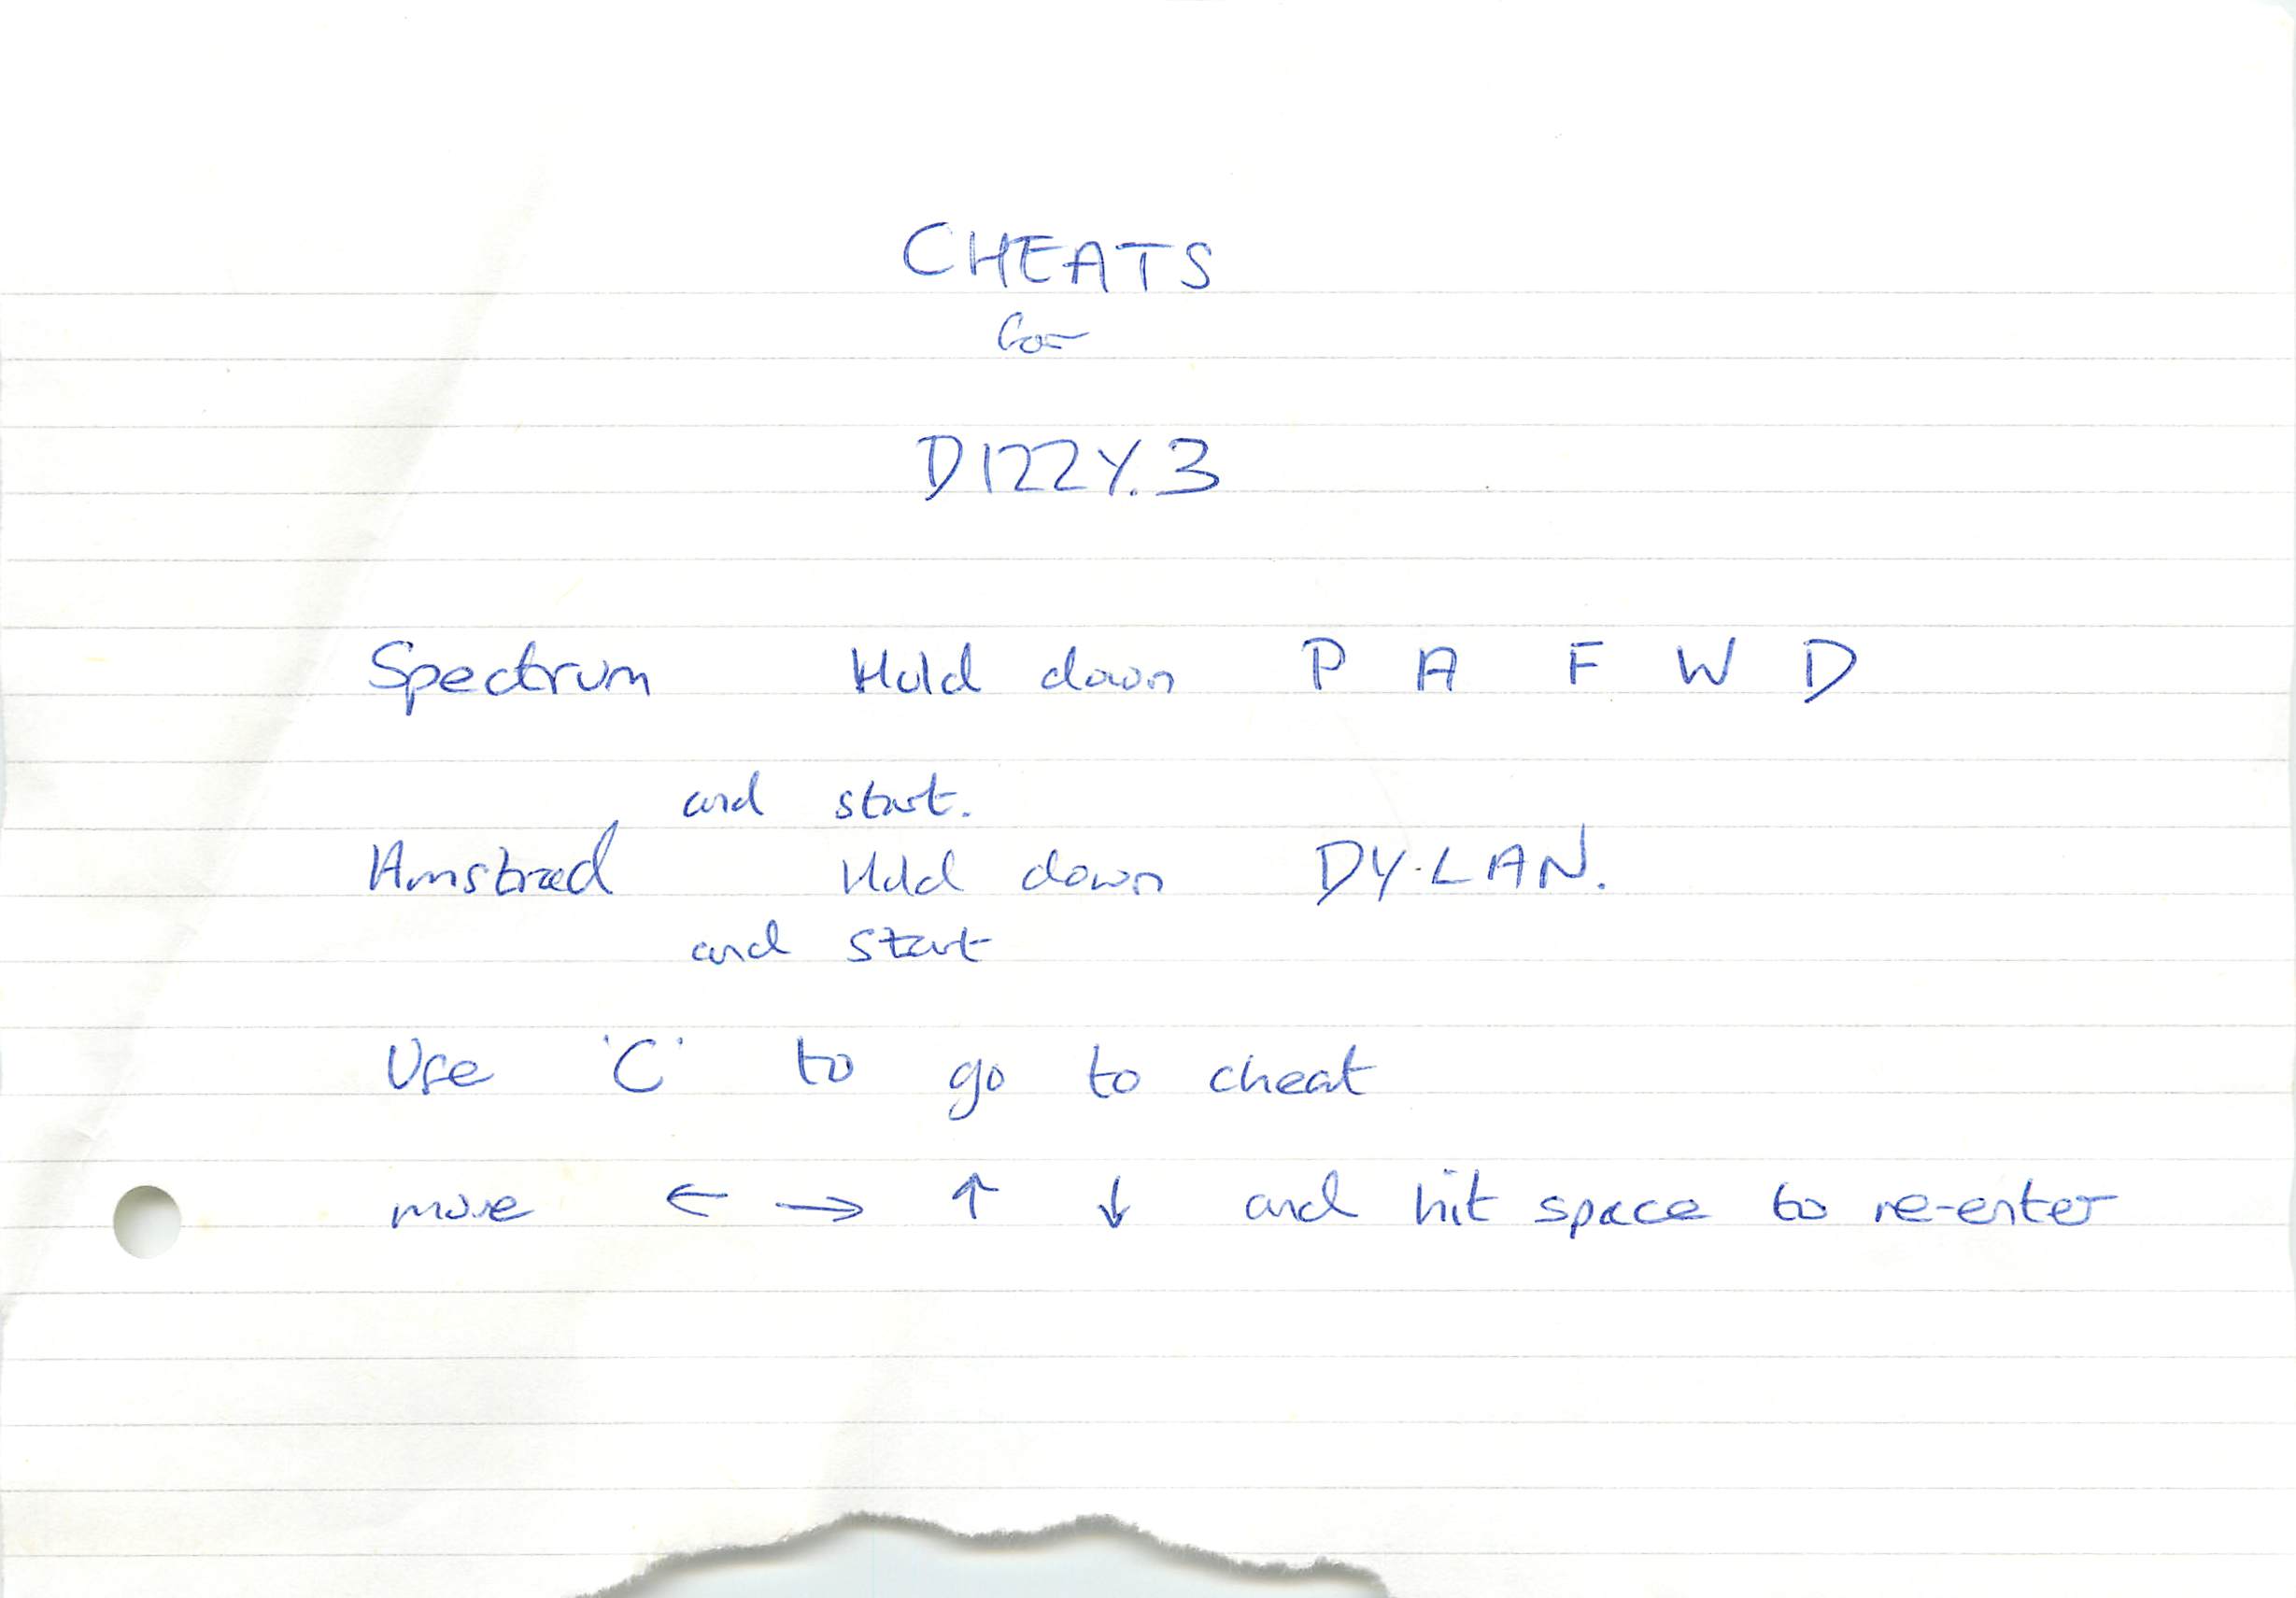 CHEATS
for
DIZZY.3
Spectrum Hold down P A F W D
and start.
Amstrad Hold down DY.LAN.
and start
Use 'C' to go to cheat
move ← → ↑ ↓ and hit space to re-enter